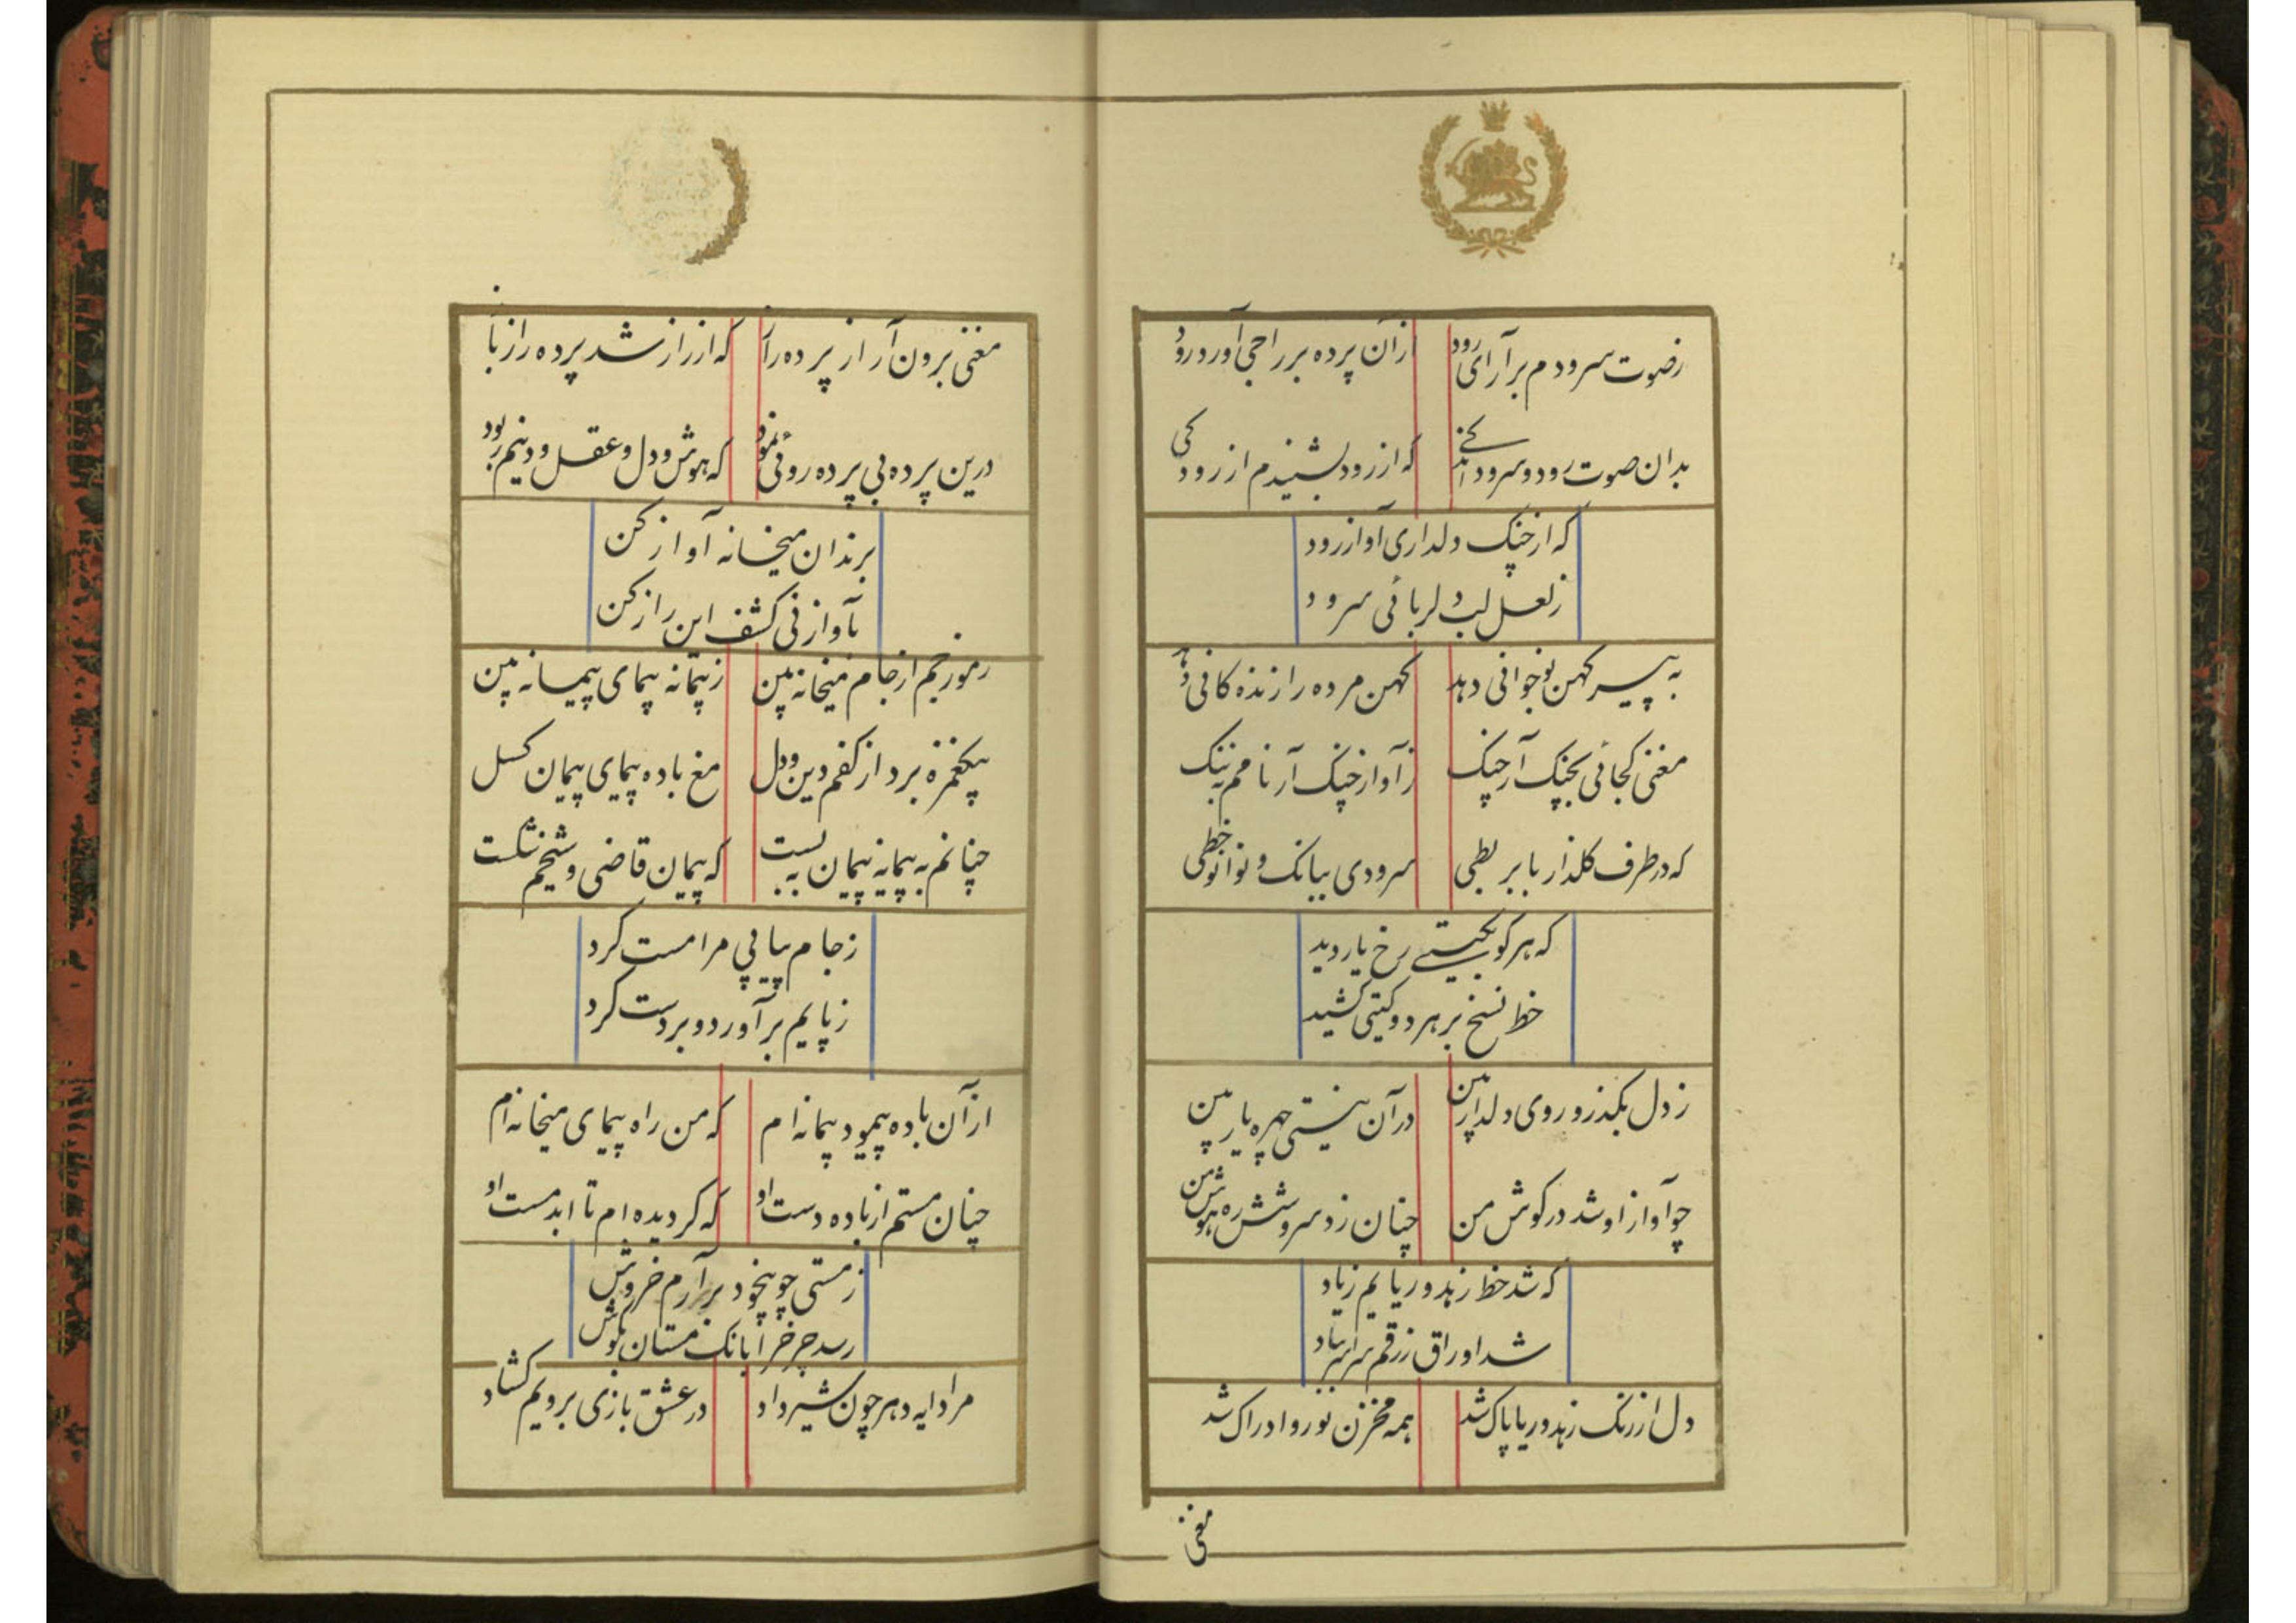 زصوت سرودم برآرای رود
ازآن پرده بر راحی آور درود
بدان صوت رود و سرود
که از رود بشنیدم از رودکی
که از چنک دلداری آواز رود
زلعل لب دلربائی سرود
به پیر کهن نوجوانی دهد
کهن مرده را زنده کانی دهد
مغنی کجائی بچنک آر چنک
زآواز چنک آر نامم به ننک
که در طرف کلذار با بربطی
سرودی ببانک و نوا نوخطی
که هر کو بکیتی رخ یار دید
خط نسخ بر هر دو کیتی کشید
ز دل بکذر و روی دلدار بین
در آن نیستی چهره یار بین
چو آواز او شد در کوش من
چنان زد سروشش ره هوش من
که شد خط زهد و ریایم زیاد
شد اوراق زرقم سراسر بباد
دل از زنک زهد و ریا پاک شد
همه مخزن نور و ادراک شد
مغنی
مغنی برون آر از پرده راز
که از راز شد پرده راز باز
درین پرده بی پرده روئی نمود
که هوش و دل و عقل و دینم ربود
برندان میخانه آواز کن
بآواز نی کشف این راز کن
رموز جم از جام میخانه بین
ز پیمانه پیمای پیمانه بین
بیکغمزه برد از کفم دین و دل
مغ باده پیمای پیمان کسل
چنانم به پیمانه پیمان ببست
که پیمان قاضی و شیخم شکست
زجام پیاپی مرا مست کرد
زپایم برآورد و بردست کرد
ازآن باده پیمود پیمانه ام
که من راه پیمای میخانه ام
چنان مستم از باده دست او
که کردیده ام تا ابد مست او
زمستی چو بیخود برآرم خروش
رسد چرخ را بانک مستان بکوش
مرا دایه دهر چون شیر داد
در عشق بازی برویم کشاد